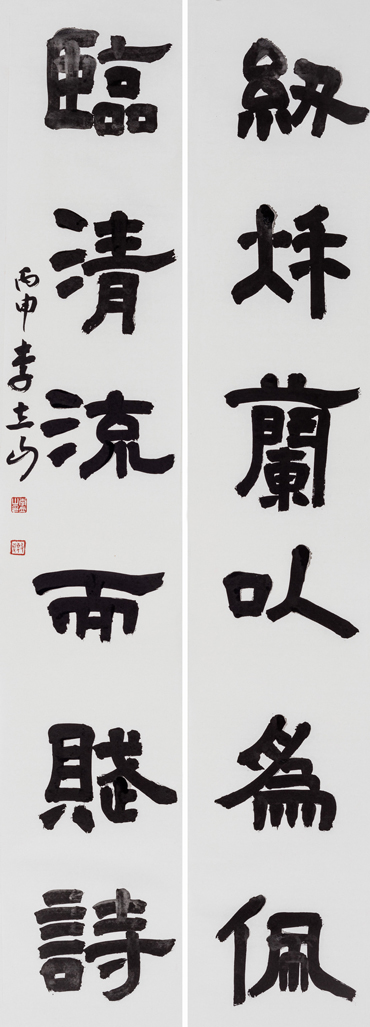 紉秌蘭以為佩
臨清流而賦詩
丙申李立山